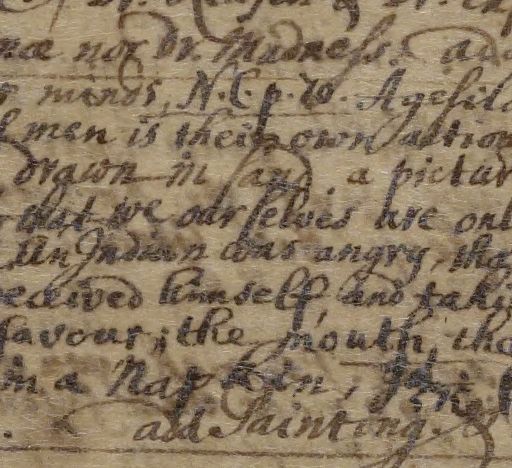 nor Dr. Madness. ad
minds, N.C. p. 10. Agesila
men is their own action
drawn in sand, a pictur
that we ourselves are onl
An Indian was angry, tha
ceived himself, and taki
favour; the mouth, tha
in a Napkin,
add Painting.